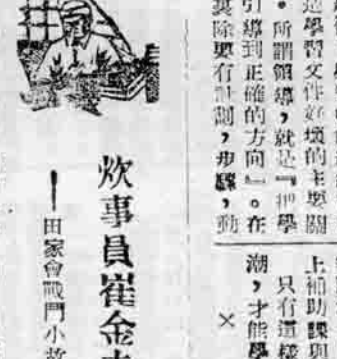 學習文件好壞的主要關
。所謂領導,就是『把學
引導到正確的方向』。在
除要有計劃,步驟,動
上補助課與
只有這樣
潮,才能學
×
炊事員崔金
——田家會戰鬥小故